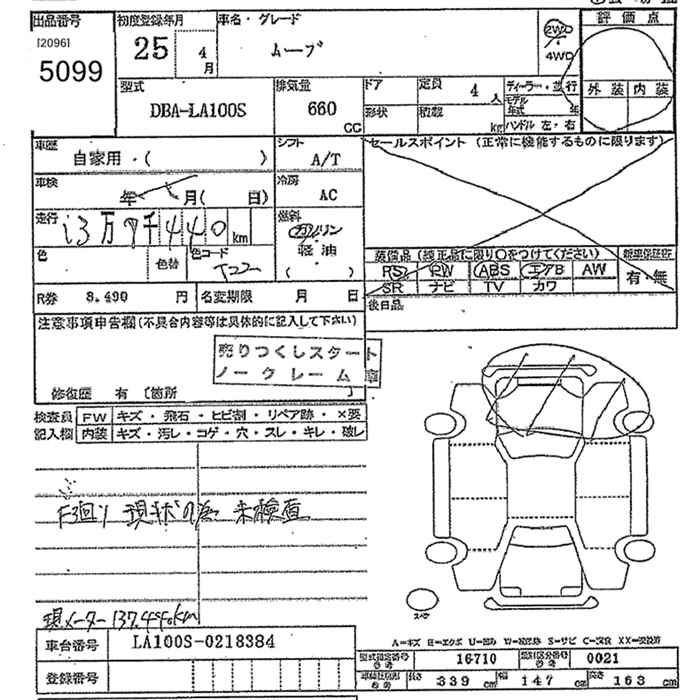 出品番号 初度登録年月 車名・グレード 評価点
[20961
5099
25 4月
ムーブ
2WD
4WD
型式 排気量 ドア 定員 4人 ディーラー・並行 外装 内装
DBA-LA100S 660 CC
形状 積載 kg
モデル年式 年
ハンドル 左・右
車歴 シフト セールスポイント (正常に機能するものに限ります)
自家用・( ) A/T
車検 冷房
年 月( 日) AC
走行 13万7千440km
燃料
ガソリン
軽油
( )
色 色替 色コード
T22
装備品 (純正品に限り○をつけてください) 新車保証書
PS PW ABS エアB AW 有・無
SR ナビ TV カワ
R券 8,490 円 名変期限 月 日
後日品
注意事項申告欄(不具合内容等は具体的に記入して下さい)
売りつくしスタート
ノークレーム 車
修復歴 有 〔箇所 〕
検査員 FW キズ・飛石・ヒビ割・リペア跡・×要
記入欄 内装 キズ・汚レ・コゲ・穴・スレ・キレ・破レ
F3回り 現状の為 未検査
現メーター 137,440km
スペア
車台番号 LA100S-0218384
登録番号
A=キズ E=エクボ U=凹み
型式指定番号 16710 類別区分番号 0021
長さ 339 cm 幅 147 cm 高さ 163 cm